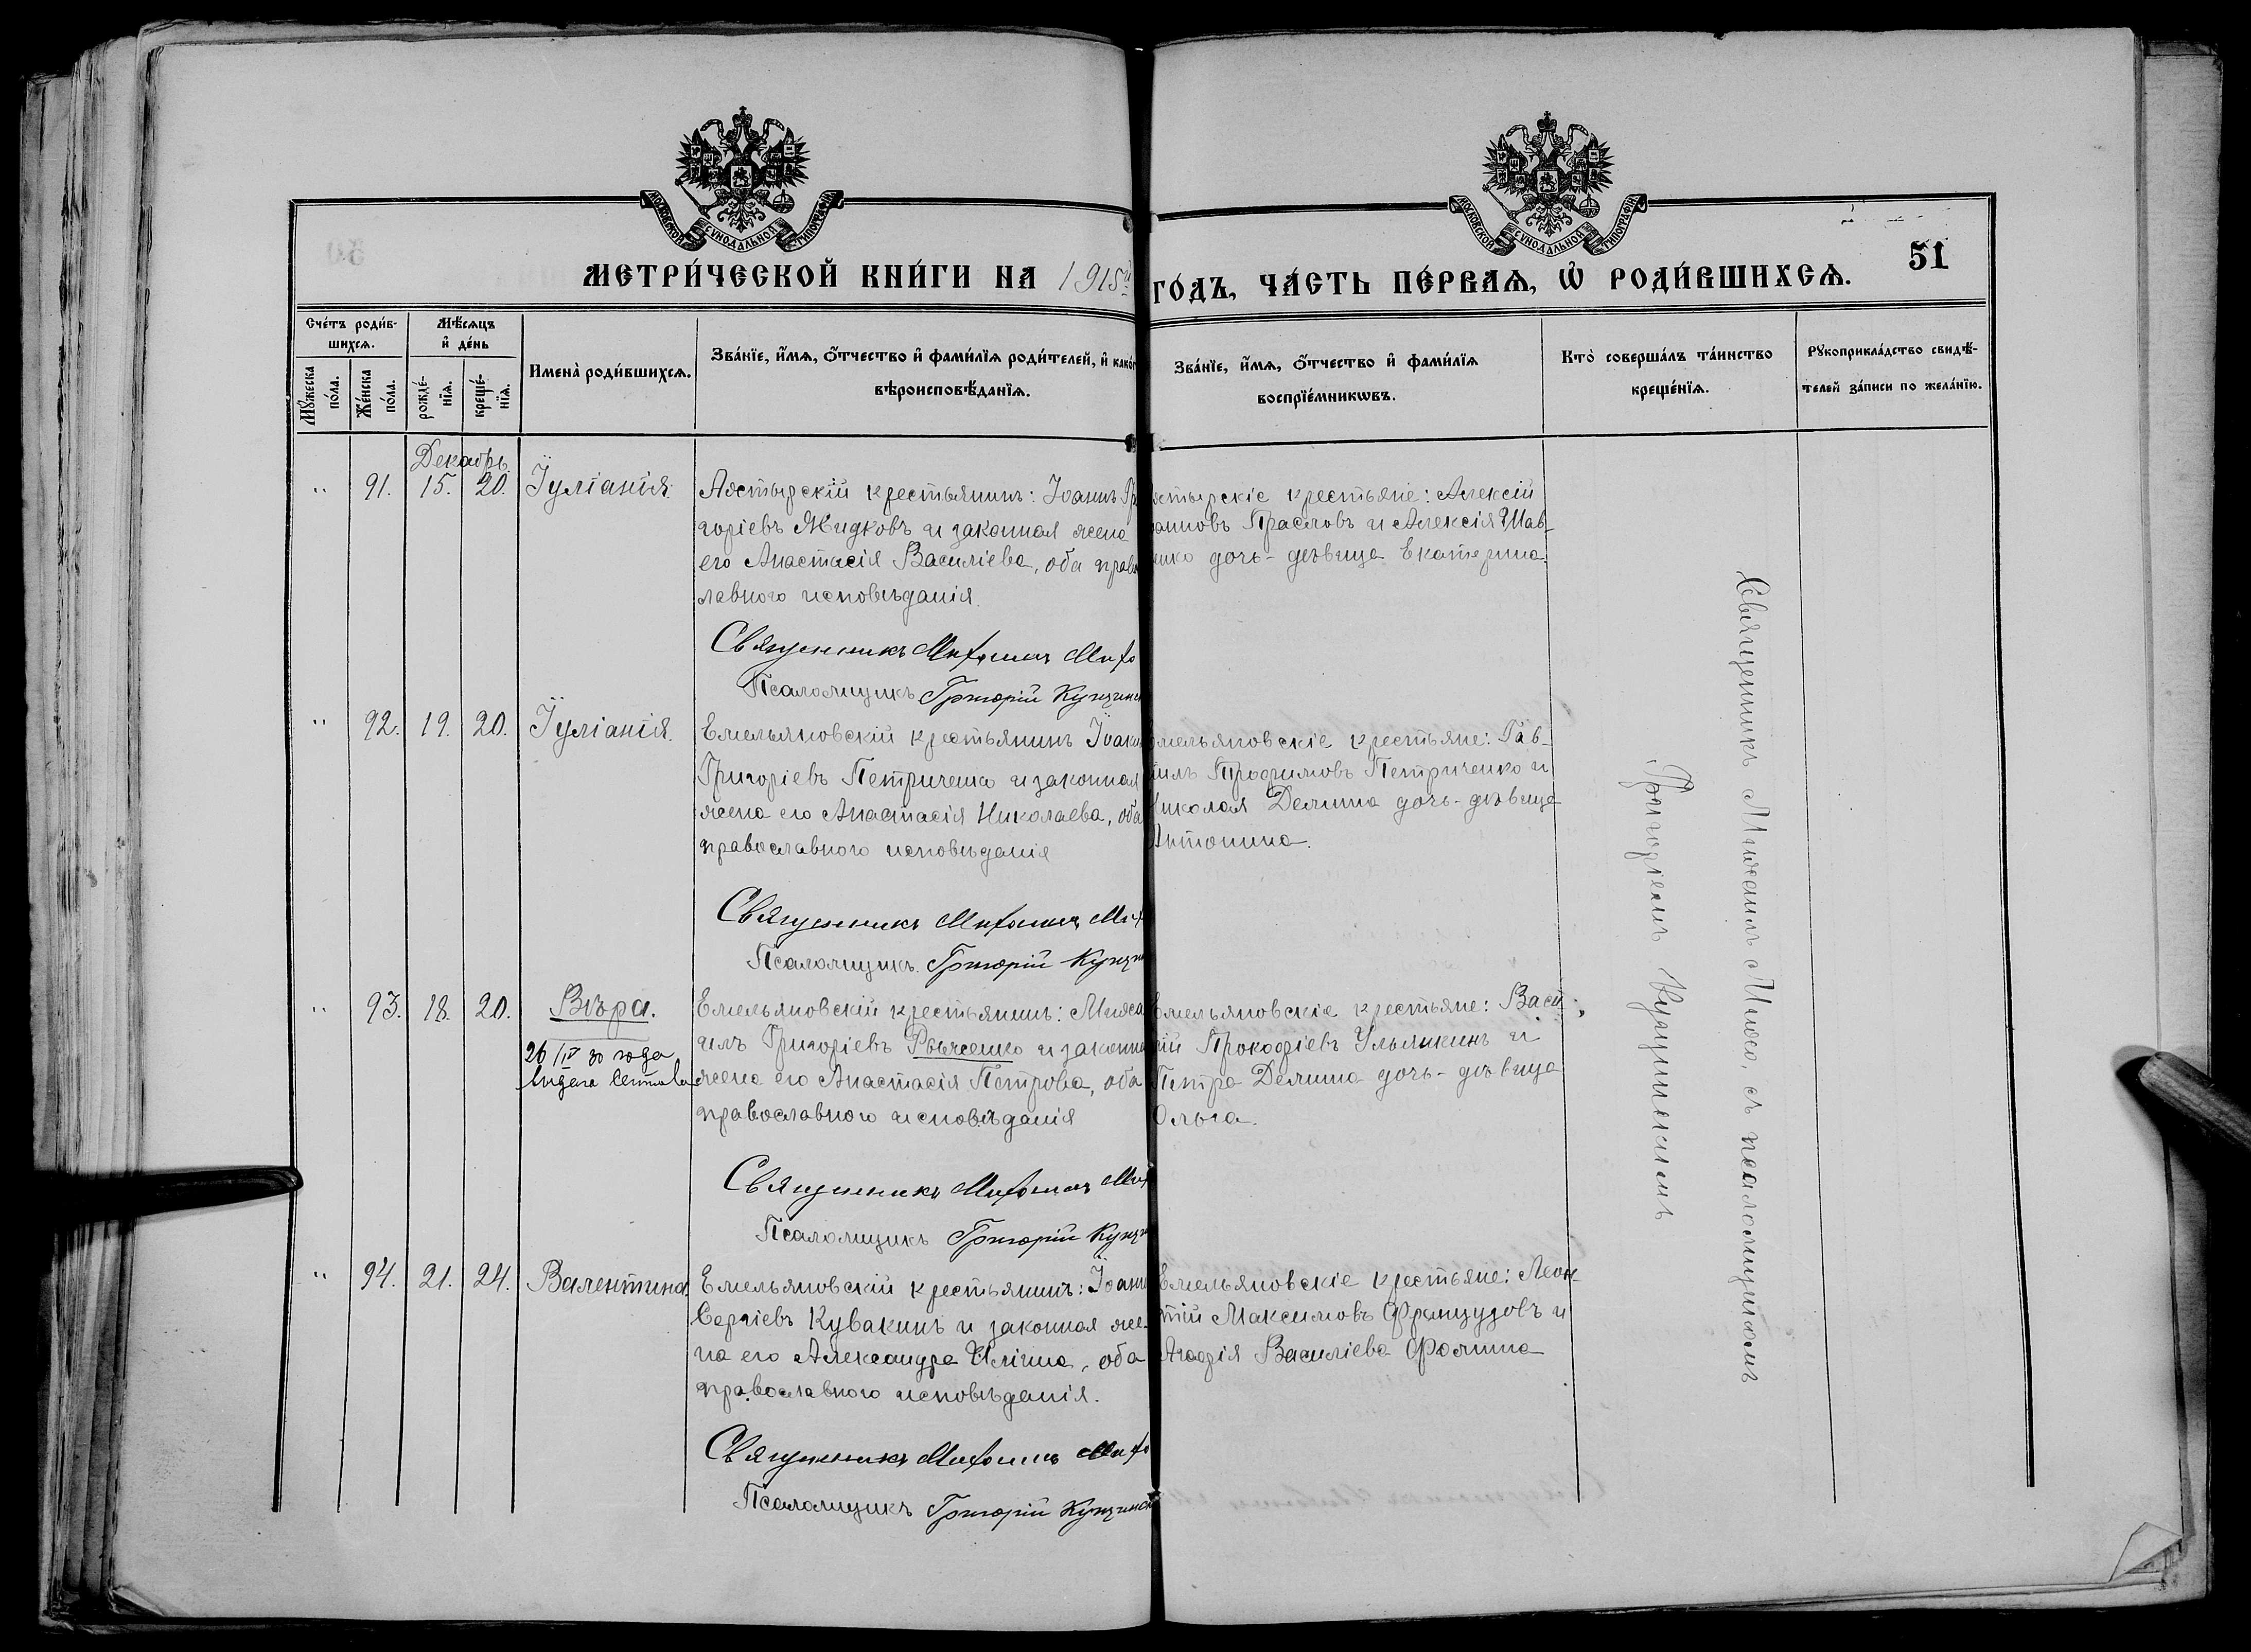 МОСКОВСКОЙ СѴНОДАЛЬНОЙ ТИПОГРАФІИ
МОСКОВСКОЙ СѴНОДАЛЬНОЙ ТИПОГРАФІИ
МЕТРИ́ЧЕСКОЙ КНИ́ГИ НА 1915й
ГО́ДЪ, ЧА́СТЬ ПЕ́РВАѦ, Ѡ҆ РОДИ́ВШИХСѦ.
51
Сче́тъ роди́в-
шихсѧ.
Мꙋ́жеска по́ла.
Же́нска по́ла.
Мѣ́сѧцъ
и҆ де́нь
рожде́-нїѧ.
креще́-нїѧ.
Имена̀ роди́вшихсѧ.
Зва́нїе, и҆́мѧ, ѻ҆́тчество и҆ фами́лїѧ роди́телей, и҆ како́г
вѣроисповѣ́данїѧ.
Зва́нїе, и҆́мѧ, ѻ҆́тчество и҆ фами́лїѧ
воспрїе́мникѡвъ.
Кто̀ соверша́лъ та́инство
креще́нїѧ.
Рꙋкоприкла́дство свидѣ́-
телей за́писи по жела́нїю.
Декабрь
" 91. 15. 20. Іуліанія
Аястырскій крестьянинъ: Іоаннъ Гр
горіевъ Жидковъ и законная жена
его Анастасія Василіева, оба право
лавного исповѣданія.
Священникъ
Псаломщикъ Григорій
ястырскіе крестьяне: Алексій
анновъ Прасловъ и Алексія Шав-
нко дочь-дѣвица Екатерина.
" 92. 19. 20. Іуліанія.
Емельяновскій крестьянинъ Іоаки
Григоріевъ Петриченко и законная
жена его Анастасія Николаева, оба
православного исповѣданія
Священникъ
Псаломщикъ. Григорій
мельяновскіе крестьяне: Гав-
іилъ Трофимовъ Петриченко и
Николая Демина дочь-дѣвица
Антонина.
" 93. 18. 20. Вѣра.
26/IV 30 года
Емельяновскій крестьянинъ: Миха
илъ Григоріевъ и законна
жена его Анастасія Петрова, оба
православного исповѣданія
Священникъ
Псаломщикъ Григорій
Емельяновскіе крестьяне: Васи
лій Прокофіевъ Ульянкинъ и
Петра Демина дочь-дѣвица
Ольга.
" 94. 21. 24. Валентина
Емельяновскій крестьянинъ: Іоанн
Сергіевъ Кувакинъ и законная же-
на его Александра Иліина, оба
православного исповѣданія.
Священникъ
Псаломщикъ Григорій
Емельяновскіе крестьяне: Леон
тій Максимовъ Французовъ и
Агафія Василіева Фомина
Священникъ съ псаломщикомъ
Григоріемъ